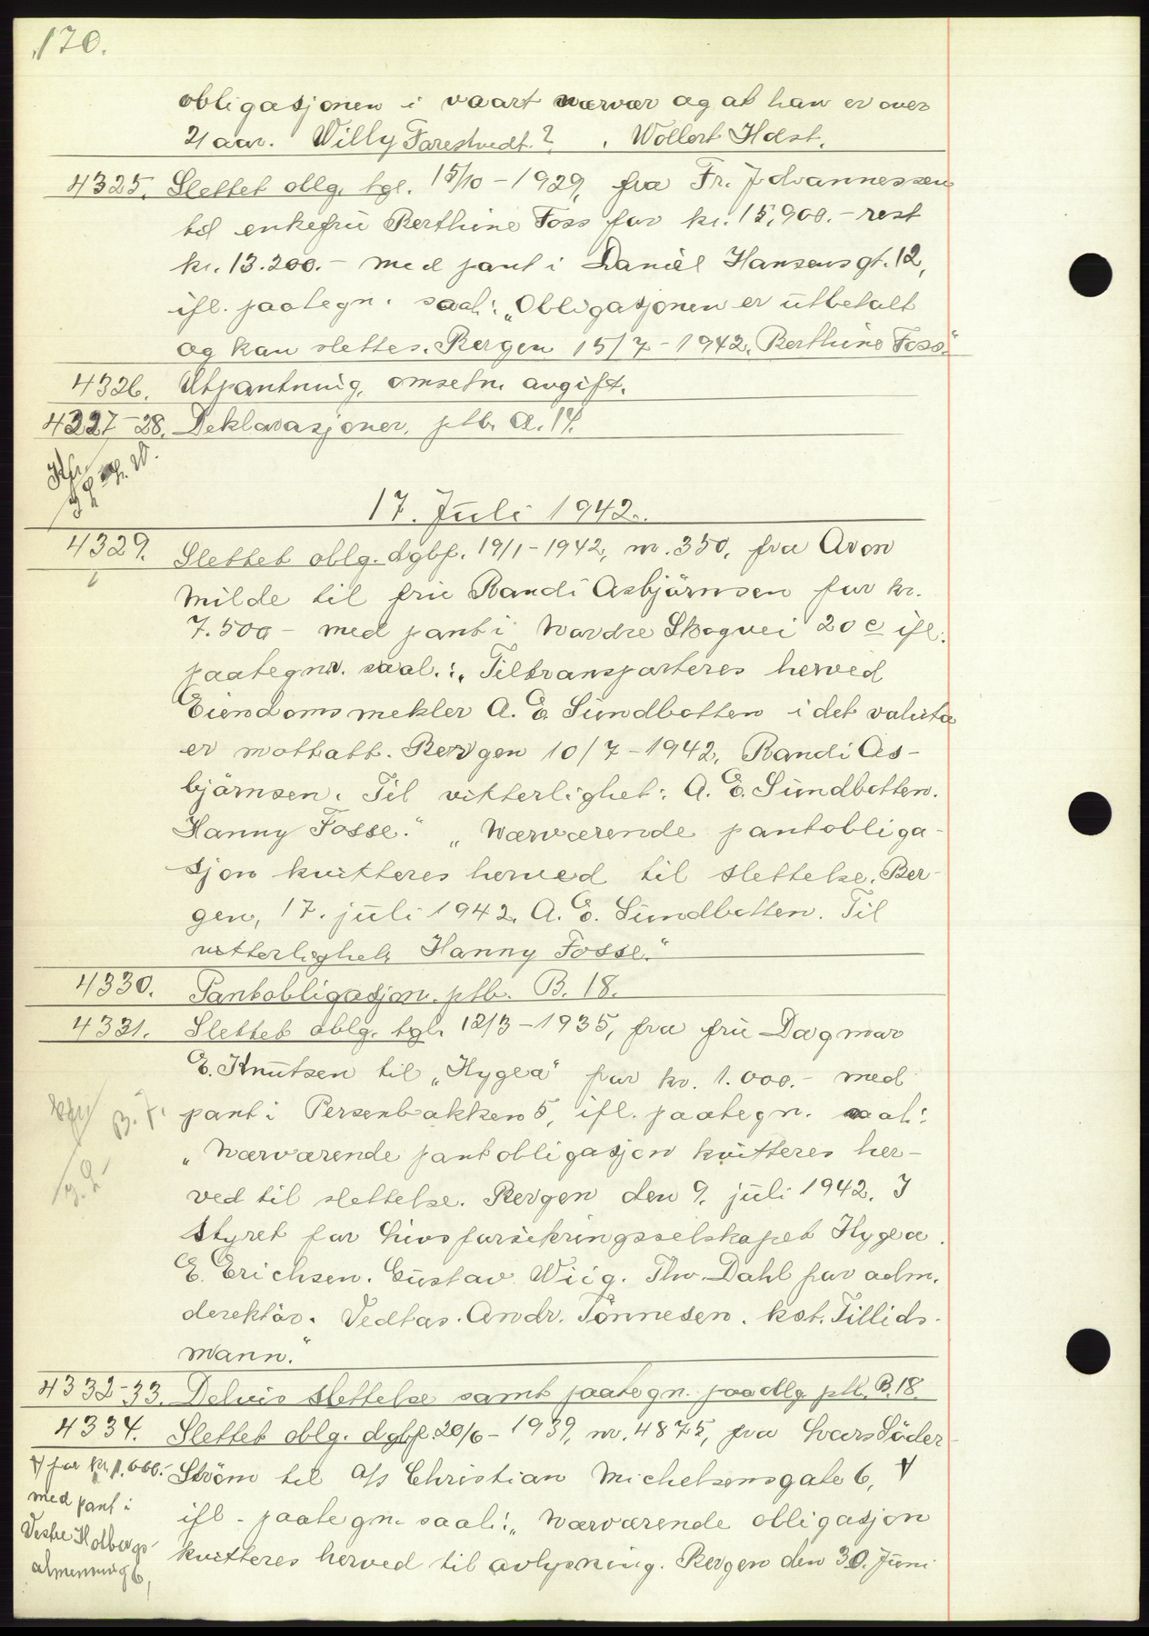 170.
obligasjonen i vaart nærvær og at han er over
21 aar. Willy Farestvedt? . Wollert Holst.
4325. Slettet oblg. tgl. 15/10 - 1929, fra Fr. Johannessen
til enkefru Berthine Foss for kr. 15.900.- rest
kr. 13.200.- med pant i Daniel Hansensgt. 12,
ifl. paategn. saal: „Obligasjonen er utbetalt
og kan slettes. Bergen 15/7 - 1942. Berthine Foss."
4326. Utpantning, omsetn. avgift.
4327-28. Deklarasjoner, ptb. A. 14.
17. Juli 1942.
4329. Slettet oblg. dgbf. 19/1 - 1942, nr. 350, fra Aron
Milde til fru Randi Asbjörnsen for kr.
7.500 - med pant i Nordre Skogvei 20 c ifl.
paategn. saal.: „Tiltransporteres herved
Eiendomsmekler A. E. Sundbotten i det valuta
er mottatt. Bergen 10/7 - 1942. Randi As-
björnsen. Til vitterlighet: A. E. Sundbotten.
Hanny Fosse." „Nærværende pantobliga-
sjon kvitteres herved til slettelse. Ber-
gen, 17. juli 1942. A. E. Sundbotten. Til
vitterlighet, Hanny Fosse."
4330. Pantobligasjon. ptb. B. 18.
4331. Slettet oblg. tgl. 12/3 - 1935, fra fru Dagmar
E. Knutsen til „Hygea" for kr. 1.000.- med
pant i Persenbakken 5, ifl. paategn. saal:
„Nærværende pantobligasjon kvitteres her-
ved til slettelse. Bergen den 9. juli 1942. I
styret for Livsforsikringsselskapet Hygea.
E. Erichsen. Gustav Wiig. Thv. Dahl for adm.
derektör. Vedtas. Andr. Tönnesen. kst. Tillids-
mann."
4332-33. Delvis slettelse samt paategn. paa oblg. ptb. B. 18.
4334. Slettet oblg. dgbf. 20/6 - 1939, nr. 4875, fra Lars Söder-
Ström til A/S Christian Michelsensgate 6, ∀
∀ for kr. 1.000.-
med pant i
Vestre Holbergs-
almenning 6,
ifl. paategn. saal: „Nærværende obligasjon
kvitteres herved til avlysning. Bergen den 30. Juni